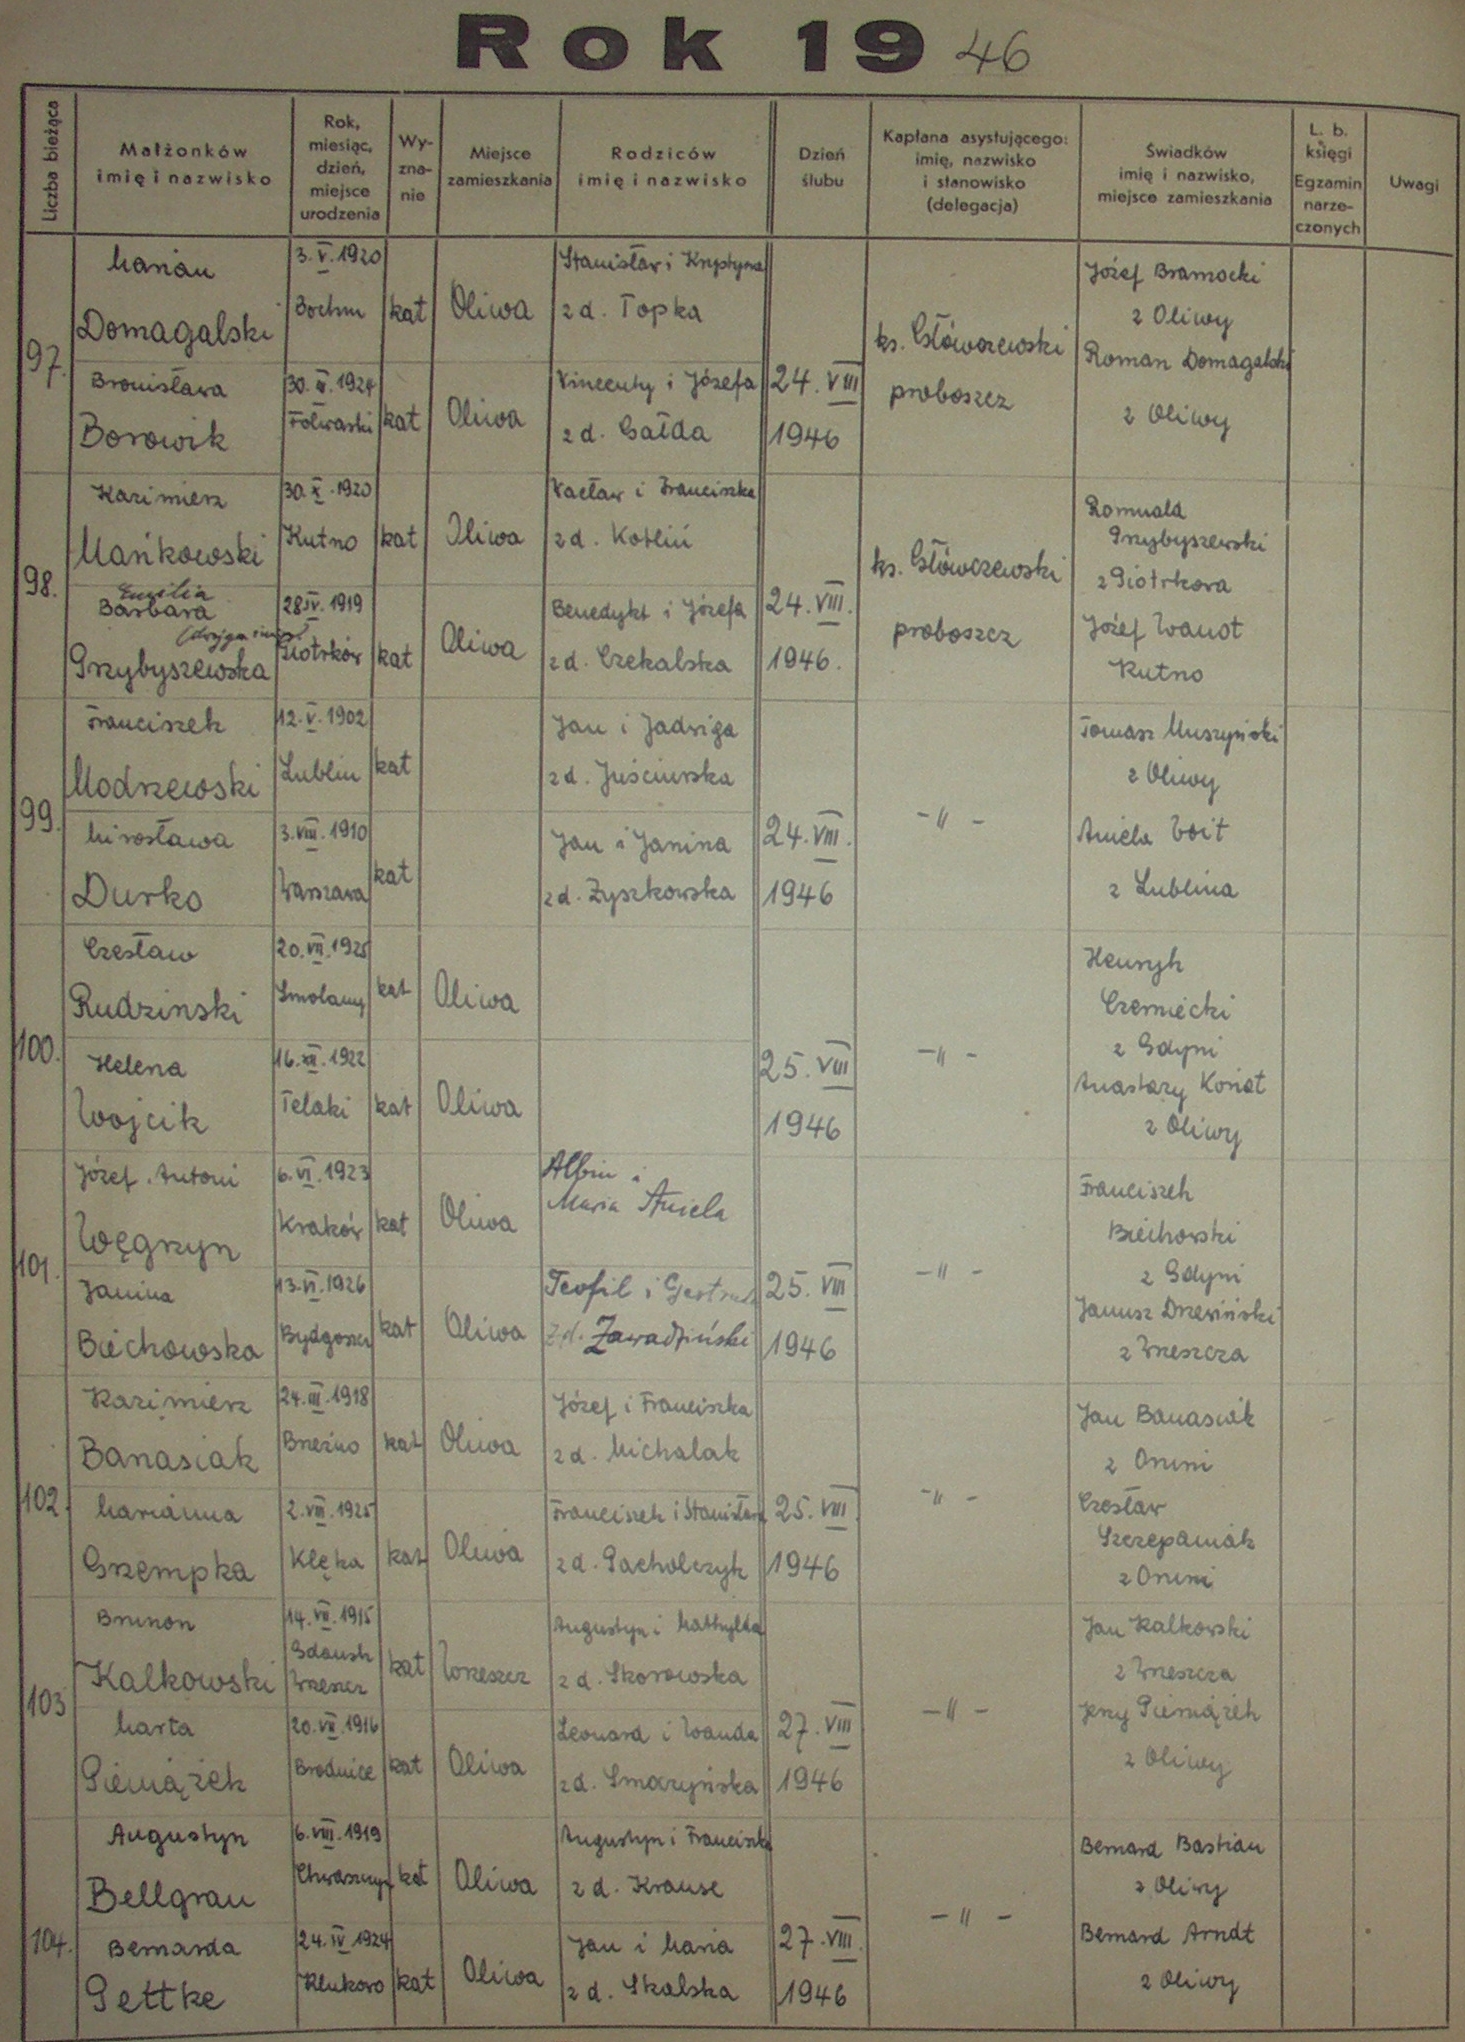 Rok 1946
Liczba bieżąca
Małżonków
imię i nazwisko
Rok,
miesiąc,
dzień,
miejsce
urodzenia
Wy-
zna-
nie
Miejsce
zamieszkania
Rodziców
imię i nazwisko
Dzień
ślubu
Kapłana asystującego:
imię, nazwisko
i stanowisko
(delegacja)
Świadków
imię i nazwisko,
miejsce zamieszkania
L. b.
księgi
Egzamin
narze-
czonych
Uwagi
97.
Marian
Domagalski
3.V.1920
Bochnn
kat
Oliwa
Stanisław i Krystyna
z d. Topka
Bronisława
Borowik
1924
Folwarki
kat
Oliwa
Wincenty i Józefa
z d. Gałda
24.VIII
1946
ks. Główczewski
proboszcz
Józef Bramocki
z Oliwy
Roman Domagalski
z Oliwy
98.
Kazimierz
Mańkowski
30.X.1920
Kutno
kat
Oliwa
Wacław i Franciszka
z d. Kotliń
Emilia
Barbara
(drugie imię)
Przybyszewska
28.IV.1919
Piotrków
kat
Oliwa
Benedykt i Józefa
z d. Czekalska
24.VIII.
1946.
ks. Główczewski
proboszcz
Romuald
Przybyszewski
z Piotrkowa
Józef Wanot
Kutno
99.
Franciszek
Modrzewski
12.V.1902
Lublin
kat
Jan i Jadwiga
z d. Juściurska
Mirosława
Durko
3.VIII.1910
Warszawa
kat
Jan i Janina
z d. Zyszkowska
24.VIII.
1946
-"-
Tomasz Muszyński
z Oliwy
Aniela Woit
z Lublina
100.
Czesław
Rudzinski
20.VII.1925
Smolany
kat
Oliwa
Helena
Wojcik
16.XII.1922
Telaki
kat
Oliwa
25.VIII
1946
-"-
Henryk
Czerniecki
z Gdyni
Anastazy Koniat
z Oliwy
101.
Józef Antoni
Węgrzyn
6.VI.1923
Kraków
kat
Oliwa
Albin i
Maria Aniela
Janina
Biechowska
13.VI.1926
Bydgoszcz
kat
Oliwa
Teofil i Gertruda
z d. Zawadziński
25.VIII
1946
-"-
Franciszek
Biechowski
z Gdyni
Janusz Drzewiński
z Wrzeszcza
102.
Kazimierz
Banasiak
24.III.1918
Brezno
kat
Oliwa
Józef i Franciszka
z d. Michalak
Marianna
Grzempka
2.VIII.1925
Klęka
kat
Oliwa
Franciszek i Stanisława
z d. Pacholczyk
25.VIII
1946
-"-
Jan Banasiak
z Oruni
Czesław
Szczepaniak
z Oruni
103
Brunon
Kalkowski
14.VII.1915
Gdańsk
Wrzeszcz
kat
Wrzeszcz
Augustyn i Mathylda
z d. Skorowska
Marta
Pieniążek
20.VII.1916
Brodnice
kat
Oliwa
Leonard i Wanda
z d. Smarzyńska
27.VIII
1946
-"-
Jan Kalkowski
z Wrzeszcza
Jerzy Pieniążek
z Oliwy
104.
Augustyn
Bellgrau
6.VIII.1919
Chwaszczyn
kat
Oliwa
Augustyn i Franciszka
z d. Krause
Bernarda
Pettke
24.IV.1924
Klukowo
kat
Oliwa
Jan i Maria
z d. Skalska
27.VIII.
1946
-"-
Bernard Bastian
z Oliwy
Bernard Arndt
z Oliwy